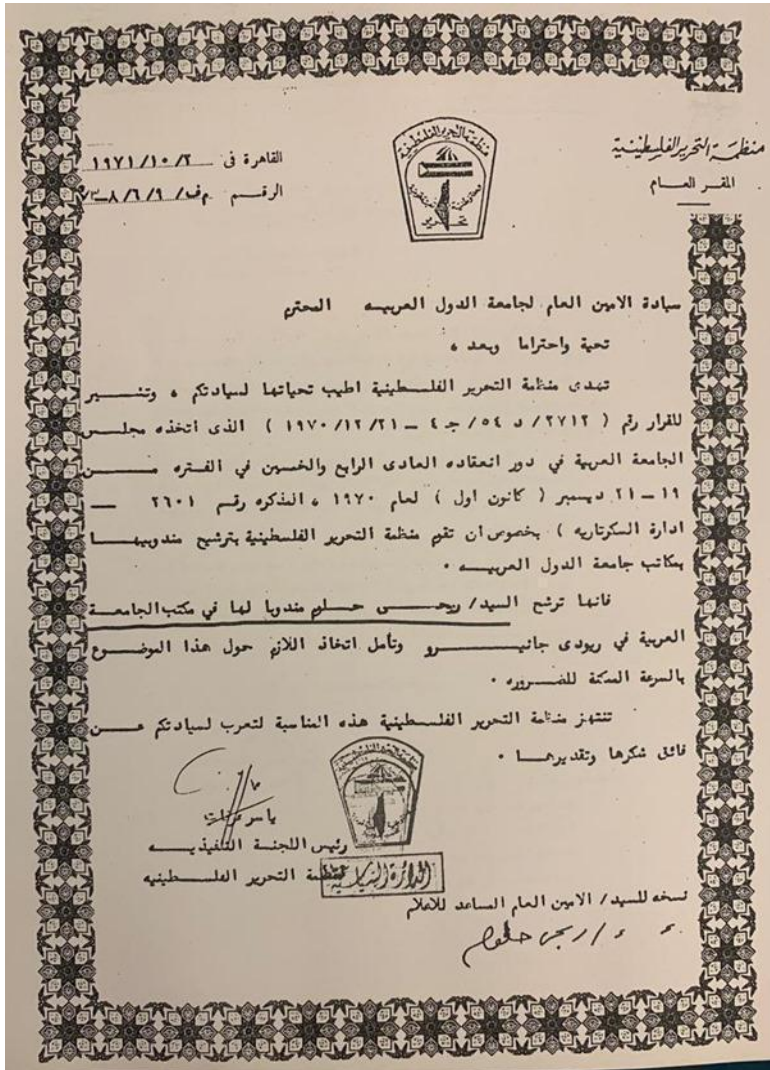 منظمة التحرير الفلسطينية
المقر العام
منظمة التحرير الفلسطينية
وحدة وطنية تعبئة قومية
تحرير
القاهرة فى ١٩٧١/١٠/٢
الرقم م ف/ ٨/٦/٩
سيادة الامين العام لجامعة الدول العربيه المحترم
تحية واحتراما وبعد ،
تهدى منظمة التحرير الفلسطينية اطيب تحياتها لسيادتكم ، وتشير
للقرار رقم ( ٢٧١٢/ د ٥٤/ جـ ٤ ــ ١٩٧٠/١٢/٢١ ) الذى اتخذه مجلس
الجامعة العربية في دور انعقاده العادى الرابع والخمسين في الفتره من
١٩ ــ ٢١ ديسمبر ( كانون اول ) لعام ١٩٧٠ ، المذكره رقم ٢٦٠١ ــ
ادارة السكرتاريه ) بخصوص ان تقوم منظمة التحرير الفلسطينية بترشيح مندوبيها
بمكاتب جامعة الدول العربيه .
فانها ترشح السيد/ ربحي حلوم مندوبا لها في مكتب الجامعة
العربية في ريودى جانيرو وتأمل اتخاذ اللازم حول هذا الموضوع
بالسرعة الممكنة للضروره .
تنتهز منظمة التحرير الفلسطينية هذه المناسبة لتعرب لسيادتكم عن
فائق شكرها وتقديرها .
ياسر عرفات
رئيس اللجنة التنفيذيه
لمنظمة التحرير الفلسطينيه
الدائرة السياسية
نسخه للسيد/ الامين العام المساعد للاعلام
ء ء / ربحي حلوم